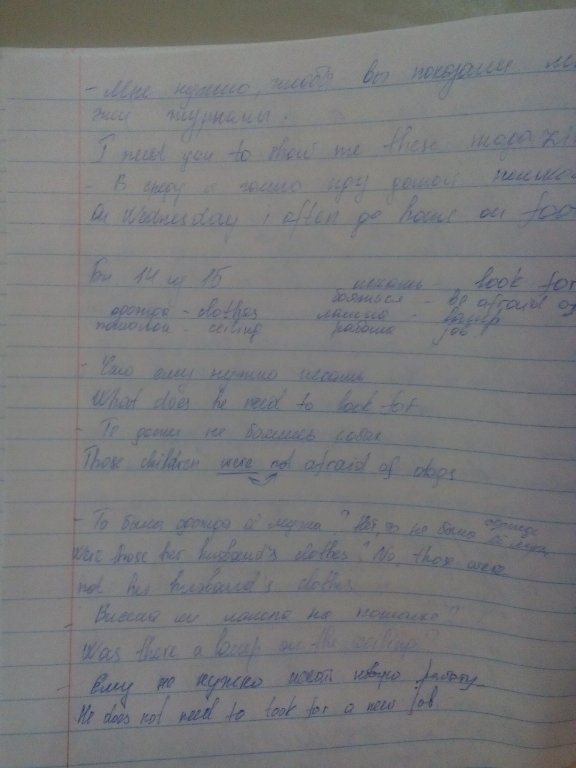 - Мне нужно, чтобы вы показали
эти журналы.
I need you to show me these
- В среду я часто иду домой
On Wednesday I often go home on foo
14 из 15 искать - look for
одежда - clothes бояться - be afraid of
потолок - ceiling лампа - lamp
работа job
- Что ему нужно искать
What does he need to look for
- Те дети не боялись собак
Those children were not afraid of dogs
- То была одежда её мужа? Нет, то не была одежда её мужа
Were those her husband's clothes? No, those were
not her husband's clothes
- Висела ли лампа на потолке?
Was there a lamp on the ceiling?
- Ему не нужно искать новую работу
He does not need to look for a new job